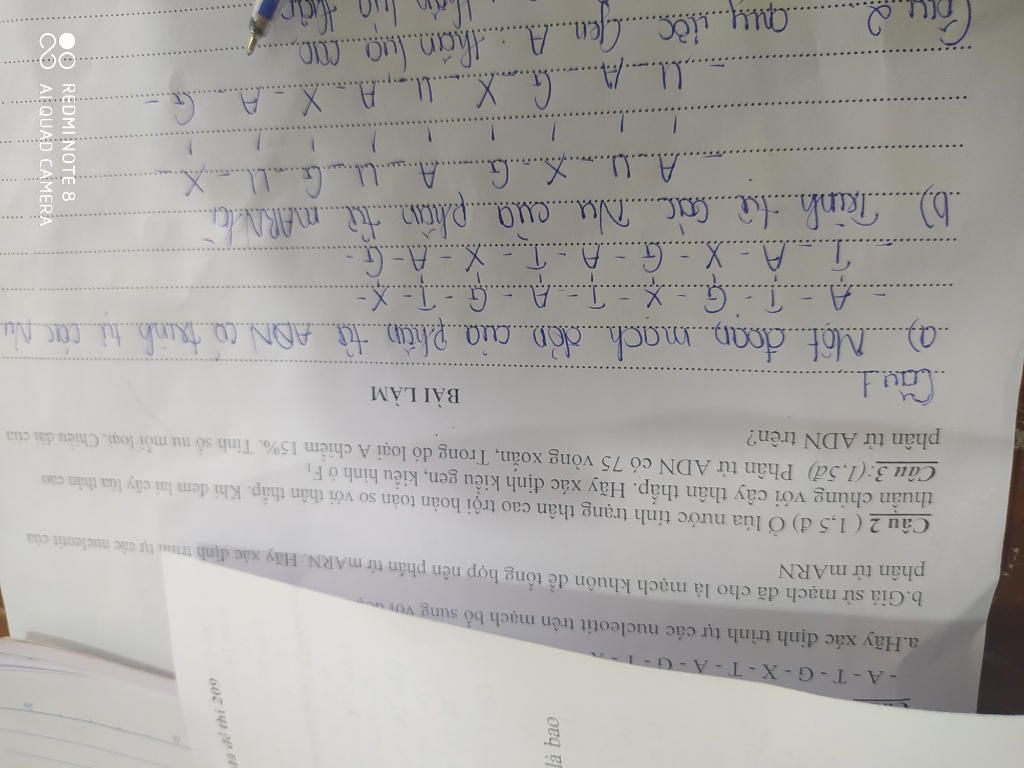 - A - T - G - X - T - A - G - T - X
a.Hãy xác định trình tự các nucleotit trên mạch bổ sung với
b.Giả sử mạch đã cho là mạch khuôn để tổng hợp nên phân tử mARN. Hãy xác định trình tự các nucleotit của
phân tử mARN
Câu 2 ( 1,5 đ) Ở lúa nước tính trạng thân cao trội hoàn toàn so với thân thấp. Khi đem lai cây lúa thân cao
thuần chủng với cây thân thấp. Hãy xác định kiểu gen, kiểu hình ở F1
Câu 3:(1.5đ) Phân tử ADN có 75 vòng xoắn, Trong đó loại A chiếm 15%. Tính số nu mỗi loại, Chiều dài của
phân tử ADN trên?
BÀI LÀM
Câu 1
a) Một đoạn mạch đơn của phân tử ADN có trình tự các Nu
- A - T - G - X - T - A - G - T - X -
- T - A - X - G - A - T - X - A - G -
b) Trình tự các Nu của phân tử mARN là
- A - U - X - G - A - U - G - U - X -
- U - A - G - X - U - A - X - A - G -
Câu 2 quy ước Gen A : thân lúa cao
thân lúa thấp
mã đề thi 209
là bao
REDMI NOTE 8
AI QUAD CAMERA